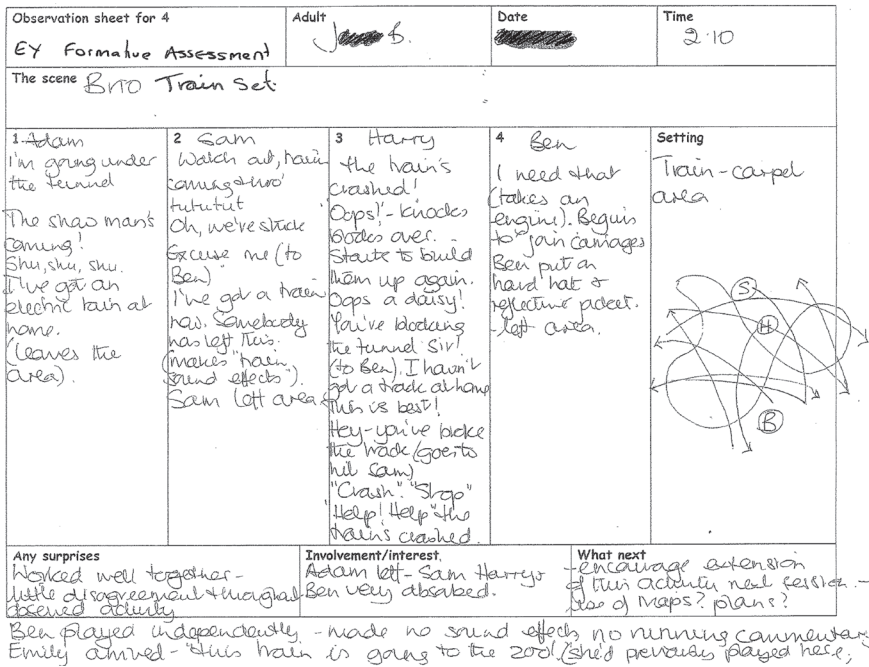 Observation sheet for 4
EY Formative Assessment
Adult
J B.
Date
Time
2.10
The scene Brio Train Set.
1 Adam
I'm going under
the tunnel
The snow man's
coming!
Shu, shu, shu.
I've got an
electric train at
home.
(leaves the
area).
2 Sam
Watch out, train
coming thro'
tututut
Oh, we've stuck
Excuse me (to
Ben)
I've got a train
now. Somebody
has left this.
(makes "train
sound effects").
Sam left area
3 Harry
the train's
crashed!
'Oops!' - knocks
blocks over.
Starts to build
them up again.
Oops a daisy!
You're blocking
the tunnel Sir!
(to Ben). I havn't
got a track at home
this is best!
Hey - you've broke
the track (goes to
hit Sam)
"Crash". "Stop"
"Help! Help" the
train's crashed.
4 Ben
I need that
(takes an
engine). Begins
to join carriages
Ben put on
hard hat &
reflective jacket.
- left area.
Setting
Train - carpet
area
S
H
B
Any surprises
Worked well together -
little disagreement throughout
observed activity
Involvement/interest
Adam left - Sam Harry &
Ben very absorbed.
What next
- encourage extension
of this activity next session. -
use of maps? plans?
Ben played independently - made no sound effects, no running commentary
Emily arrived - "this train is going to the zoo!" (she'd previously played here.